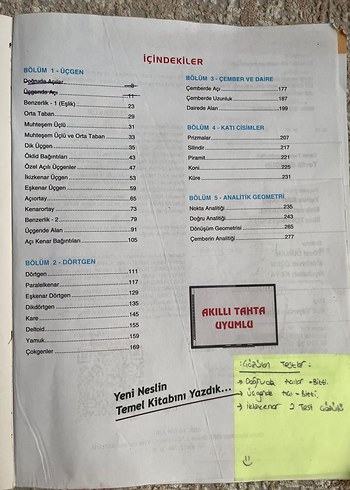 İÇİNDEKİLER
BÖLÜM 1 - ÜÇGEN
Doğruda Açılar 8
Üçgende Açı 11
Benzerlik - 1 (Eşlik) 23
Orta Taban 29
Muhteşem Üçlü 31
Muhteşem Üçlü ve Orta Taban 33
Dik Üçgen 35
Öklid Bağıntıları 43
Özel Açılı Üçgenler 47
İkizkenar Üçgen 53
Eşkenar Üçgen 59
Açıortay 65
Kenarortay 73
Benzerlik - 2 79
Üçgende Alan 91
Açı Kenar Bağıntıları 105
BÖLÜM 2 - DÖRTGEN
Dörtgen 111
Paralelkenar 117
Eşkenar Dörtgen 129
Dikdörtgen 135
Kare 145
Deltoid 155
Yamuk 159
Çokgenler 169
BÖLÜM 3 - ÇEMBER VE DAİRE
Çemberde Açı 177
Çemberde Uzunluk 187
Dairede Alan 199
BÖLÜM 4 - KATI CİSİMLER
Prizmalar 207
Silindir 217
Piramit 221
Koni 225
Küre 231
BÖLÜM 5 - ANALİTİK GEOMETRİ
Nokta Analitiği 235
Doğru Analitiği 243
Dönüşüm Geometrisi 265
Çemberin Analitiği 277
AKILLI TAHTA
UYUMLU
Yeni Neslin
Temel Kitabını Yazdık...
Çözülen Testler :
→ Doğruda Açılar → Bitti.
→ Üçgende Açı → Bitti.
→ İkizkenar 2 Test çözüldü